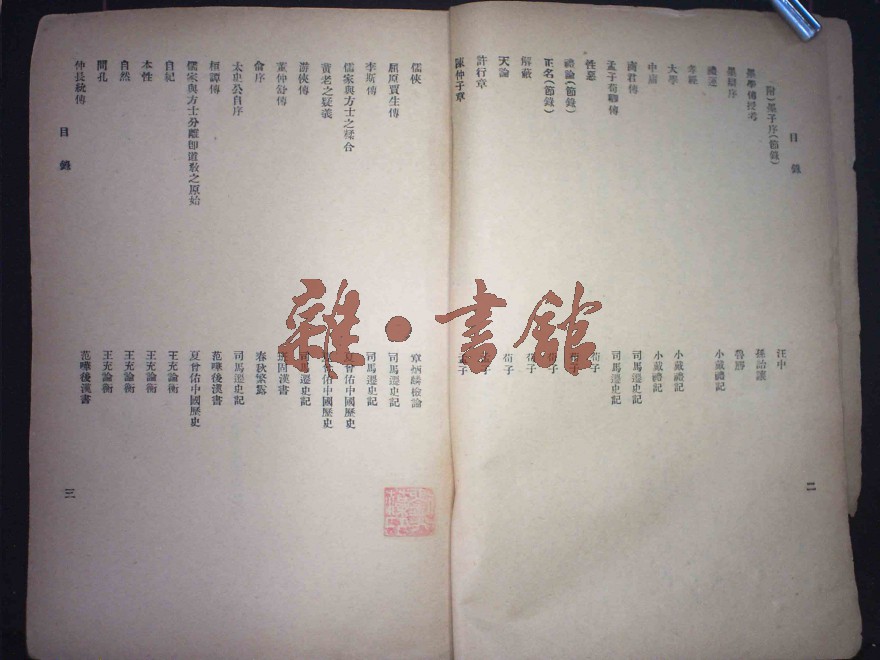 目錄
(附)墨子序(節錄) 汪中
墨學傳授考 孫詒讓
墨辯序 魯勝
禮運 小戴禮記
孝經
大學 小戴禮記
中庸 小戴禮記
商君傳 司馬遷史記
孟子荀卿傳 司馬遷史記
性惡 荀子
禮論(節錄) 荀子
正名(節錄) 荀子
解蔽 荀子
天論 荀子
許行章 孟子
陳仲子章 孟子
二
儒俠 章炳麟檢論
屈原賈生傳 司馬遷史記
李斯傳 司馬遷史記
儒家與方士之糅合 夏曾佑中國歷史
黃老之疑義 夏曾佑中國歷史
游俠傳 司馬遷史記
董仲舒傳 班固漢書
俞序 春秋繁露
太史公自序 司馬遷史記
桓譚傳 范曄後漢書
儒家與方士分離即道教之原始 夏曾佑中國歷史
自紀 王充論衡
本性 王充論衡
自然 王充論衡
問孔 王充論衡
仲長統傳 范曄後漢書
目錄
三
雜·書館